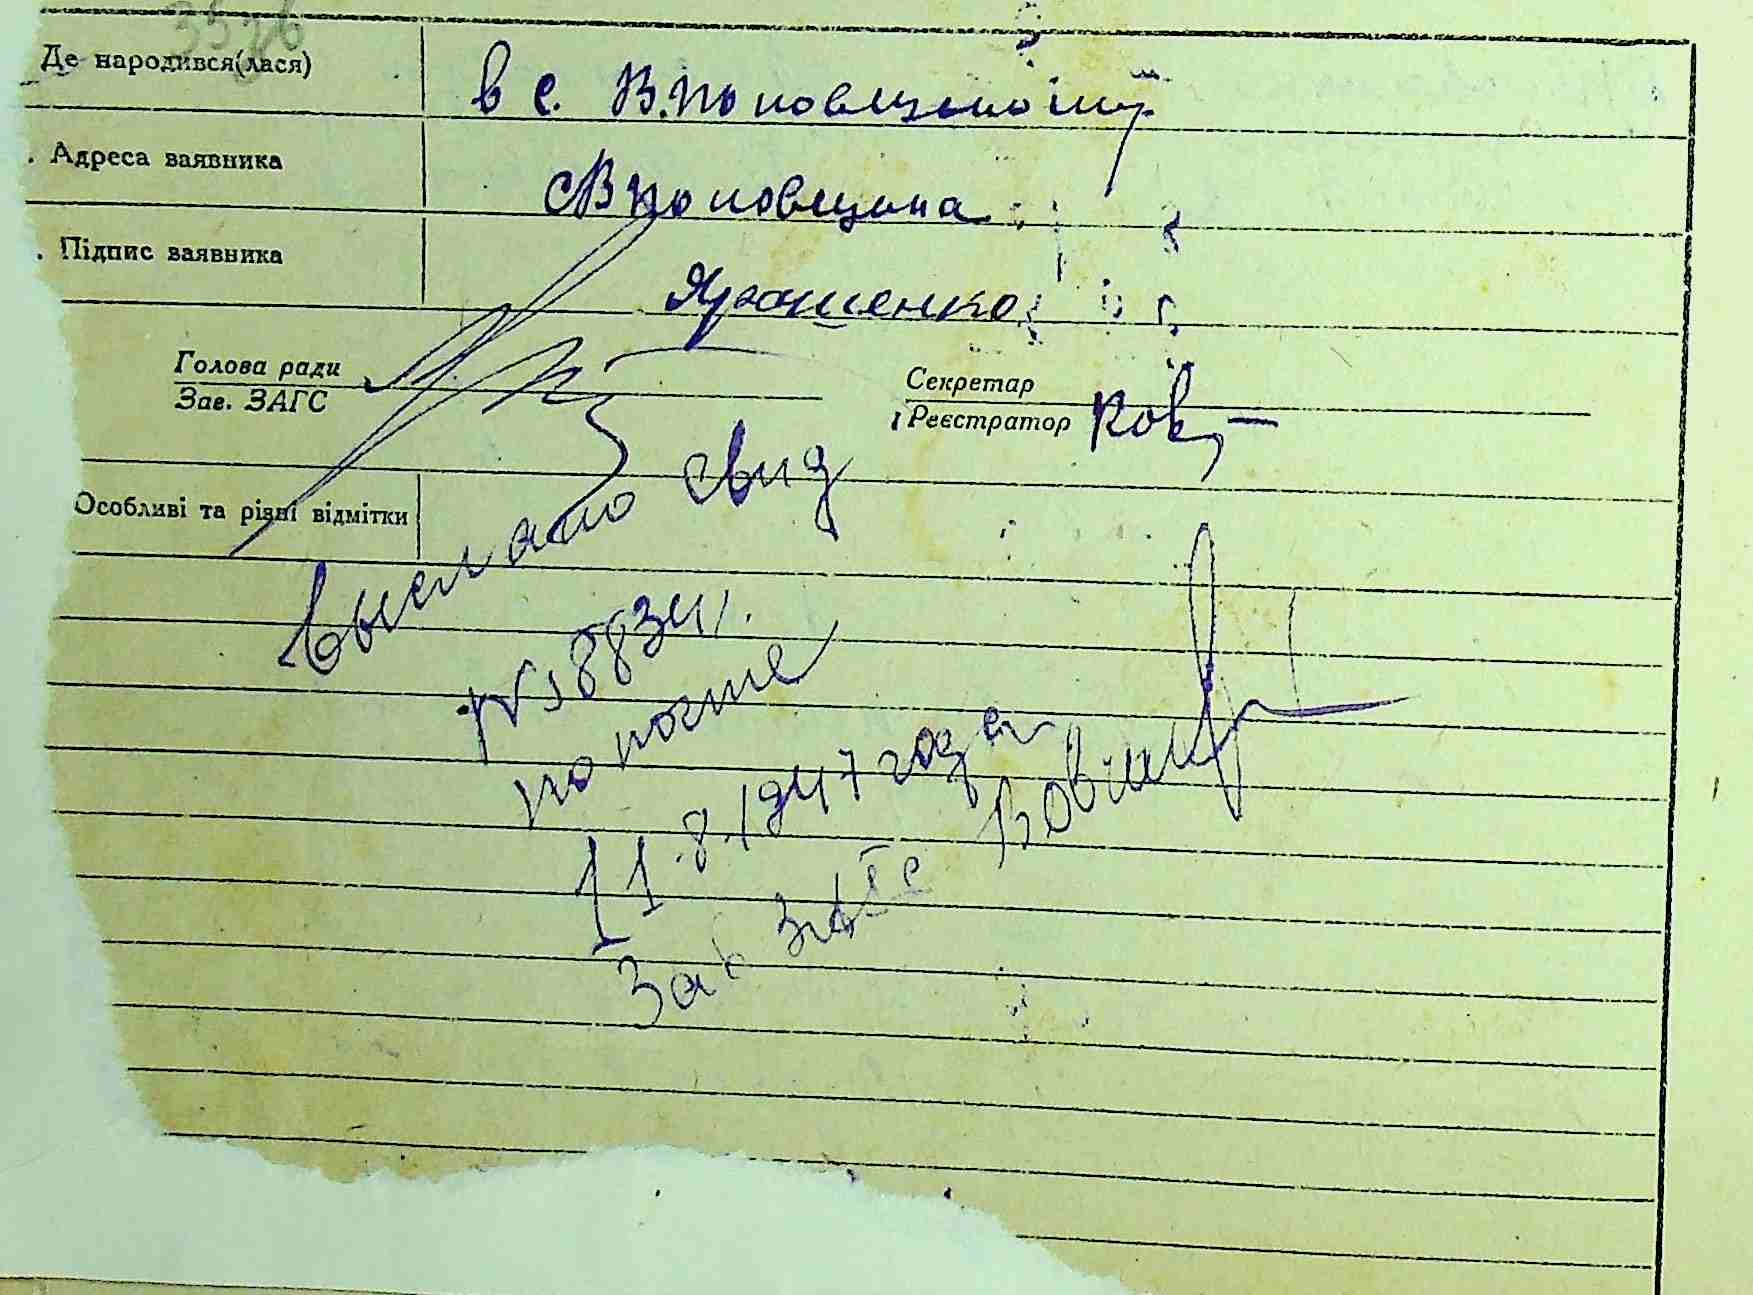 3526
Де народився(лася)
в с. В.Поповщеностту
Адреса заявника
с В Поповщина
Підпис заявника
Ярошенко
Голова ради
Зав. ЗАГС
Секретар
Реєстратор Ков
Особливі та різні відмітки
Выслано свид
по почте
11.8.1947 года
Зав ЗАГС